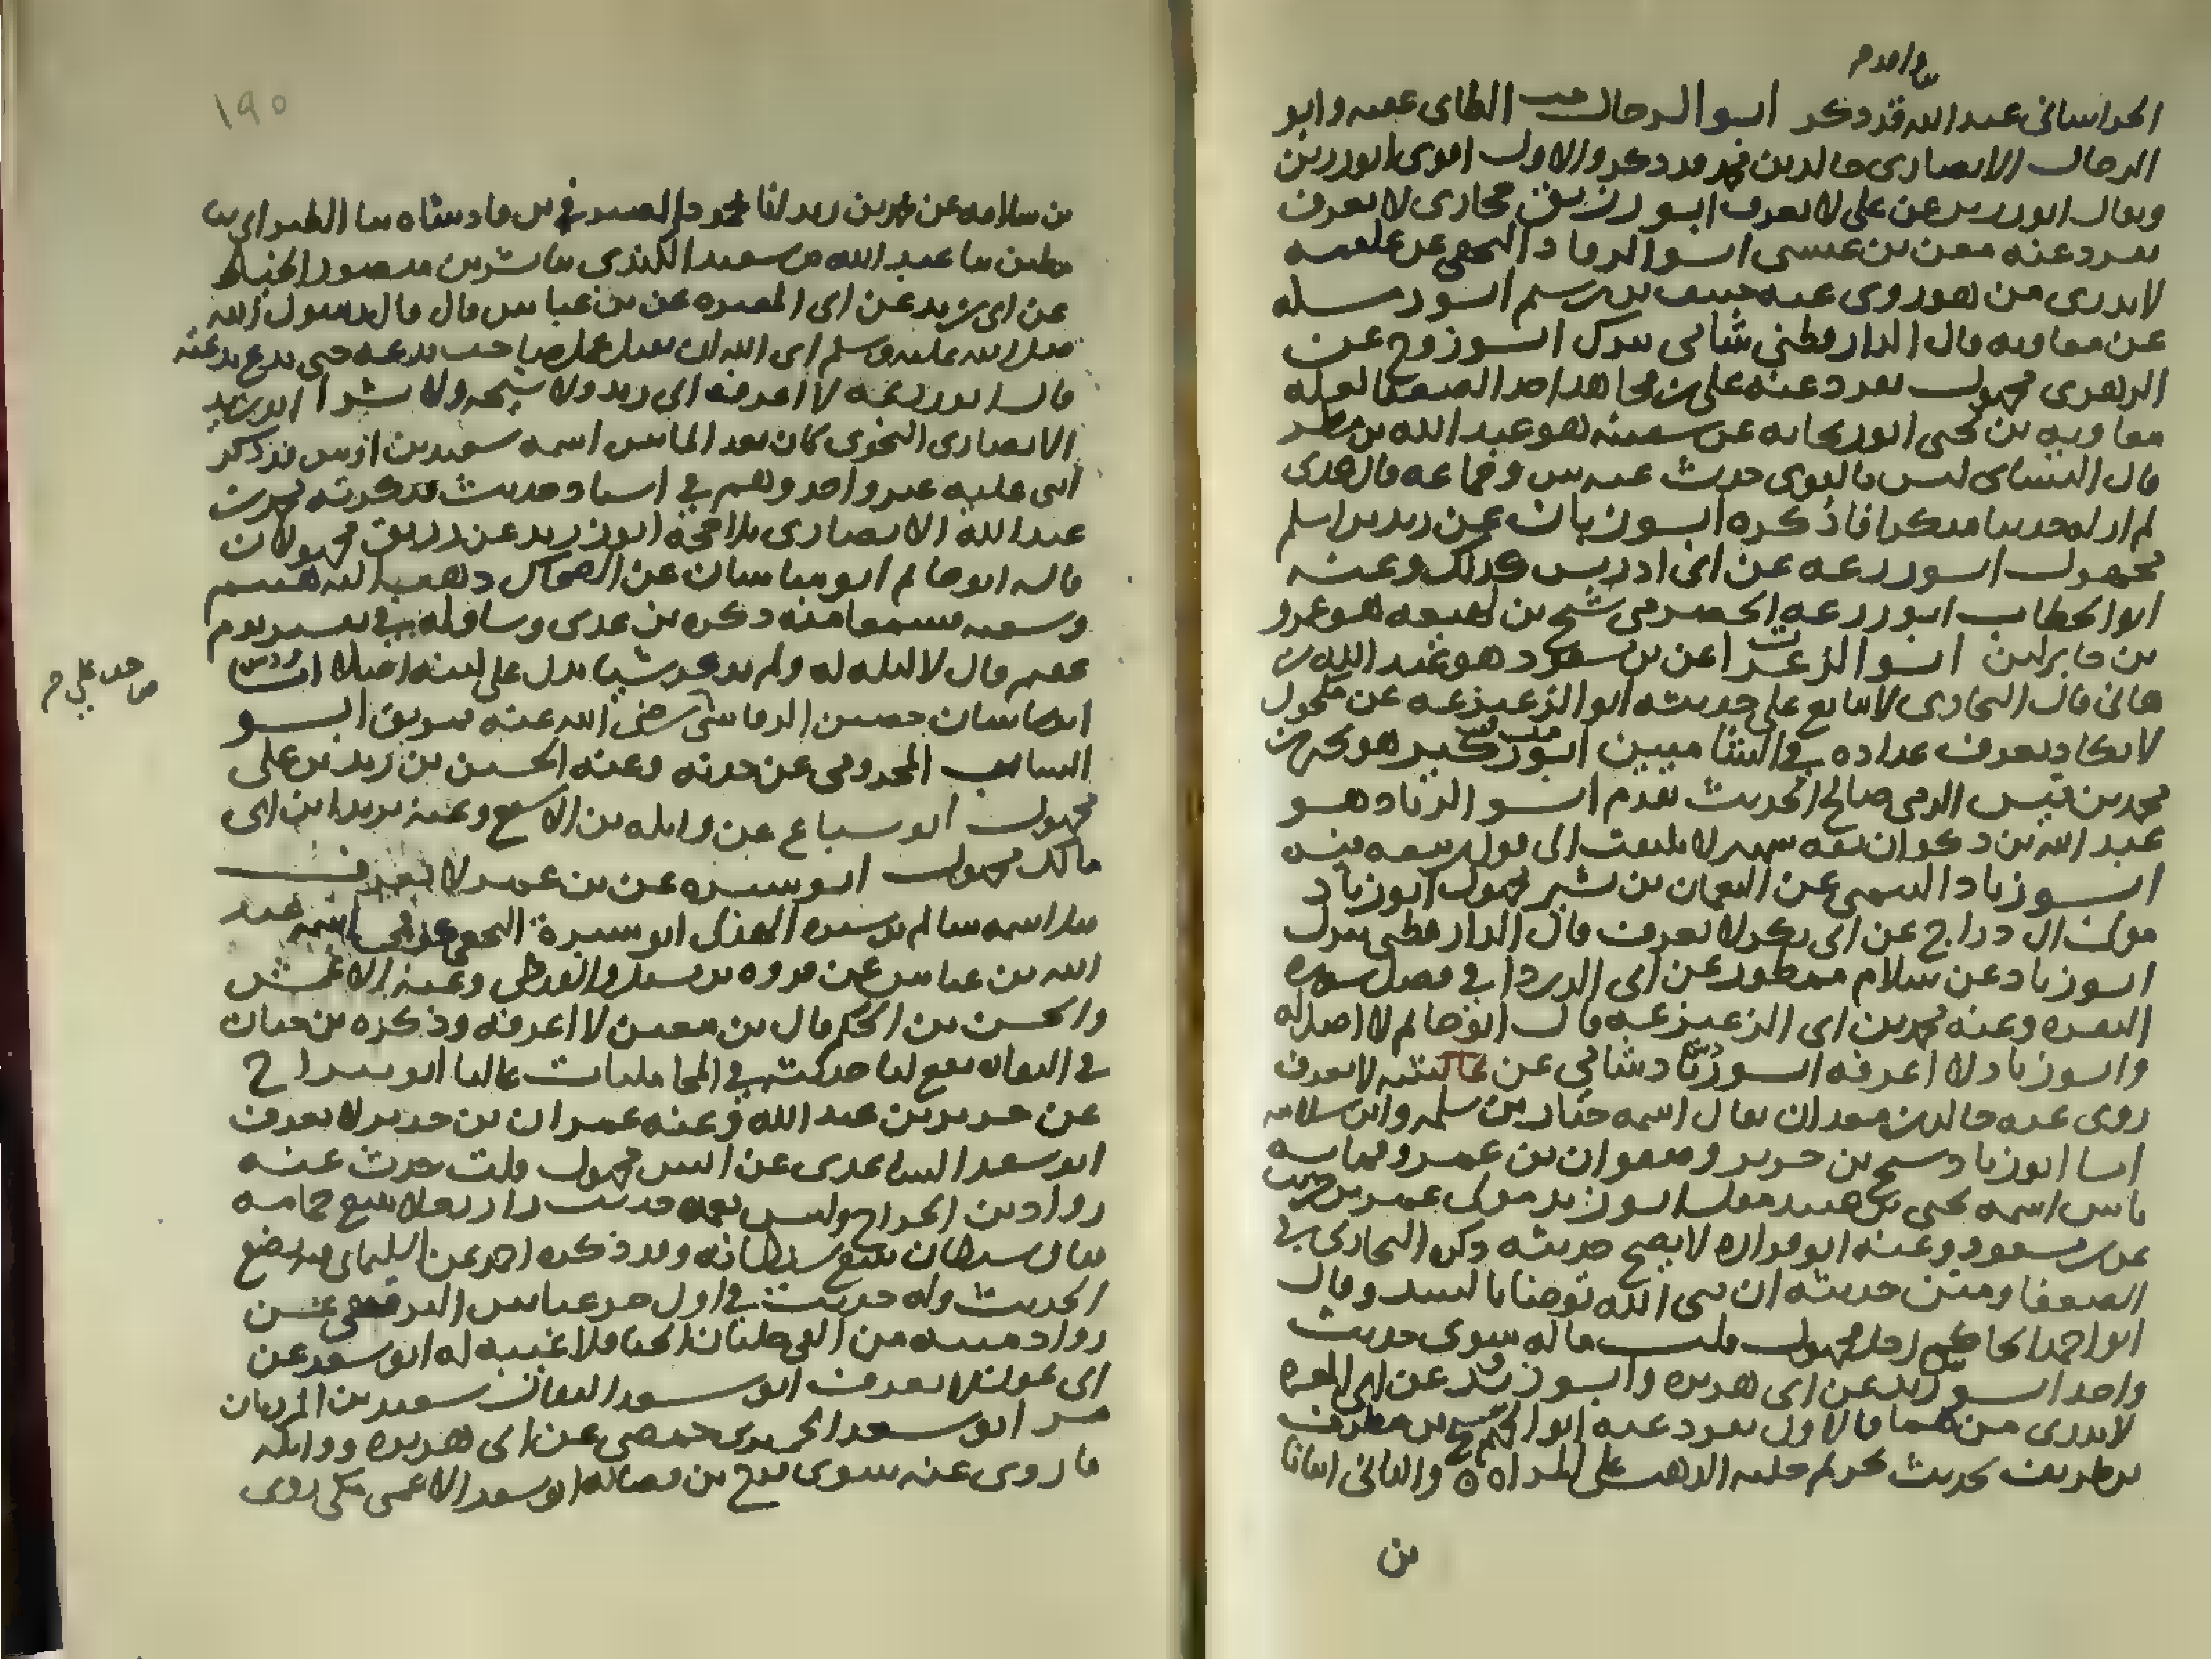 الخراساني عبد الله قد ذكر ابو الرحال الطائي عقبة وابو
الرحال الانصاري خالد بن محمد وذكر والاول اقوى ابو رزين
ويقال ابو زرير عن علي لا يعرف ابو رزيق حجازي لا يعرف
تفرد عنه معن بن عيسى ابو الرماد النخعي عن علقمة
لا يدرى من هو روى عنه حبيب بن ابو رسله
عن معاوية قال الدارقطني شامي يترك ابو زوج عن
الزهري مجهول تفرد عنه علي بن مجاهد احد الضعفا لعله
معاوية بن يحيى ابو ريحانة عن سفينة هو عبد الله بن مطر
قال النسائي ليس بالقوي حدث عنه وجماعة قال عدي
لم ار له حديثا منكرا فاذكره ابو زبان عن زيد بن اسلم
مجهول ابو زرعة عن ابي ادريس كذلك وعنه
ابو الخطاب ابو زرعة الحضرمي شيخ بن لهيعة هو عمرو
بن جابر لين ابو الزعرا عن بن مسعود هو عبد الله بن
هاني قال البخاري لا يتابع على حديثه ابو الزعيزعة عن مكحول
لا يكاد يعرف عداده في الشاميين ابو زكير هو يحيى بن
محمد بن قيس المدني صالح الحديث تقدم ابو الزناد هو
عبد الله بن ذكوان ثقة شهير لا يلتفت الى قول ربيعة فيه
ابو زياد التيمي عن النعمان بن بشير مجهول ابو زياد
مولى ال دراج عن ابي بكر لا يعرف قال الدارقطني يترك
ابو زياد عن سلام ممطور عن ابي الدردا في فضل سورة
البقرة وعنه محمد بن ابي الزعيزعة قال ابو حاتم لا اصل له
وابو زياد لا اعرفه ابو زياد شامي عن عائشة لا يعرف
روى عنه خالد بن معدان يقال اسمه خيار بن سلمة وابن سلامة
اما ابو زياد يحيى بن عبيد ابو زيد مولى عمرو بن حريث
عن بن مسعود وعنه ابو فزارة لا يصح حديثه ذكره البخاري في
الضعفا ومتن حديثه ان نبي الله توضا بالنبيذ وقال
ابو احمد الحاكم رجل مجهول قلت ما له سوى حديث
واحد ابو زيد عن ابي هريرة وابو زيد عن ابي المغيرة
لا يدرى من هما فالاول تفرد عنه ابو الجهم بن مطرف
بن طريف بحديث تحريم حلية الذهب على المراة والثاني اتانا
بن
١٩٥
بن سلامة عن محمد بن زيد انا محمود الصيرفي بن فادشاه نا الطبراني نا
مطين نا عبد الله بن سعيد الكندي نا بشر بن منصور الحناط
عن ابي زيد عن ابي المغيرة عن بن عباس قال قال رسول الله
صلى الله عليه وسلم ابى الله ان يقبل عمل صاحب بدعة حتى يدع بدعته
قال ابو زرعة لا اعرف ابي زيد ولا شيخه ولا بشرا ابو زيد
الانصاري النحوي كان بعد المايتين اسمه سعيد بن اوس قد ذكر
اثنى عليه غير واحد وهم في اسناد حديث ذكرته محمد بن
عبد الله الانصاري بلا حجة ابو زيد عن زريق مجهولان
قاله ابو حاتم ابو ساسان عن الضحاك ذهب اليه هشيم
وسمعه منه ذكره بن عدي وساق له في تفسير يوم
عقيم قال لا ليلة له ولم يذكر شيا يدل على لينه اصلا اما
ابو ساسان حصين الرقاشي رضي الله عنه ابو
السايب المخزومي عن جدته وعنه الحسن بن زيد بن علي
مجهول ابو سباع عن واثلة بن الاسقع وعنه يزيد ابن ابي
مالك مجهول ابو سبرة عن بن عمر لا يعرف
اسمه سالم بن سبرة الهذلي ابو سبرة النخعي اسمه عبد
الله بن عباس عن فروة بن مسيك والقرظي وعنه الاعمش
والحسن بن الحكم قال بن معين لا اعرفه وذكره بن حبان
في الثقات يقع لنا حديثه في المحامليات عاليا ابو سراج
عن جرير بن عبد الله وعنه عمران بن حدير لا يعرف
ابو سعد الساعدي عن انس مجهول قلت حدث عنه
رواد بن الجراح وليس بعمدة حديث راى رجلا يتبع حمامة
فقال شيطان يتبع شيطانة وقد ذكره احمد بن السليماني فيمن يضع
الحديث وله حديث في اول جزء عباس الترقفي عن
رواد فيه من القى جلباب الحيا فلا غيبة له ابو سعد عن
ابي لا يعرف ابو سعد البقال سعيد بن المرزبان
مر ابو سعد الحميري حمصي عن ابي هريرة وواثلة
ما روى عنه سوى فرج بن فضالة ابو سعد الاعمى مكي روى